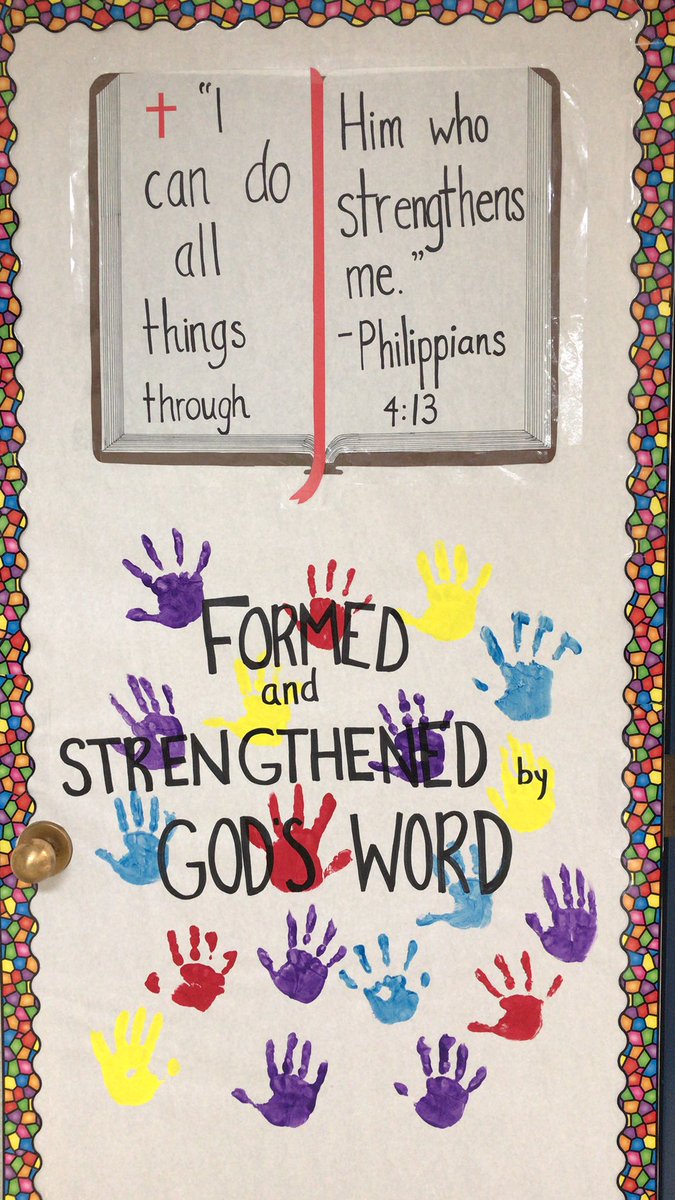 "I
can do
all
things
through
Him who
strengthens
me."
-Philippians
4:13
FORMED
and
STRENGTHENED by
GOD'S WORD